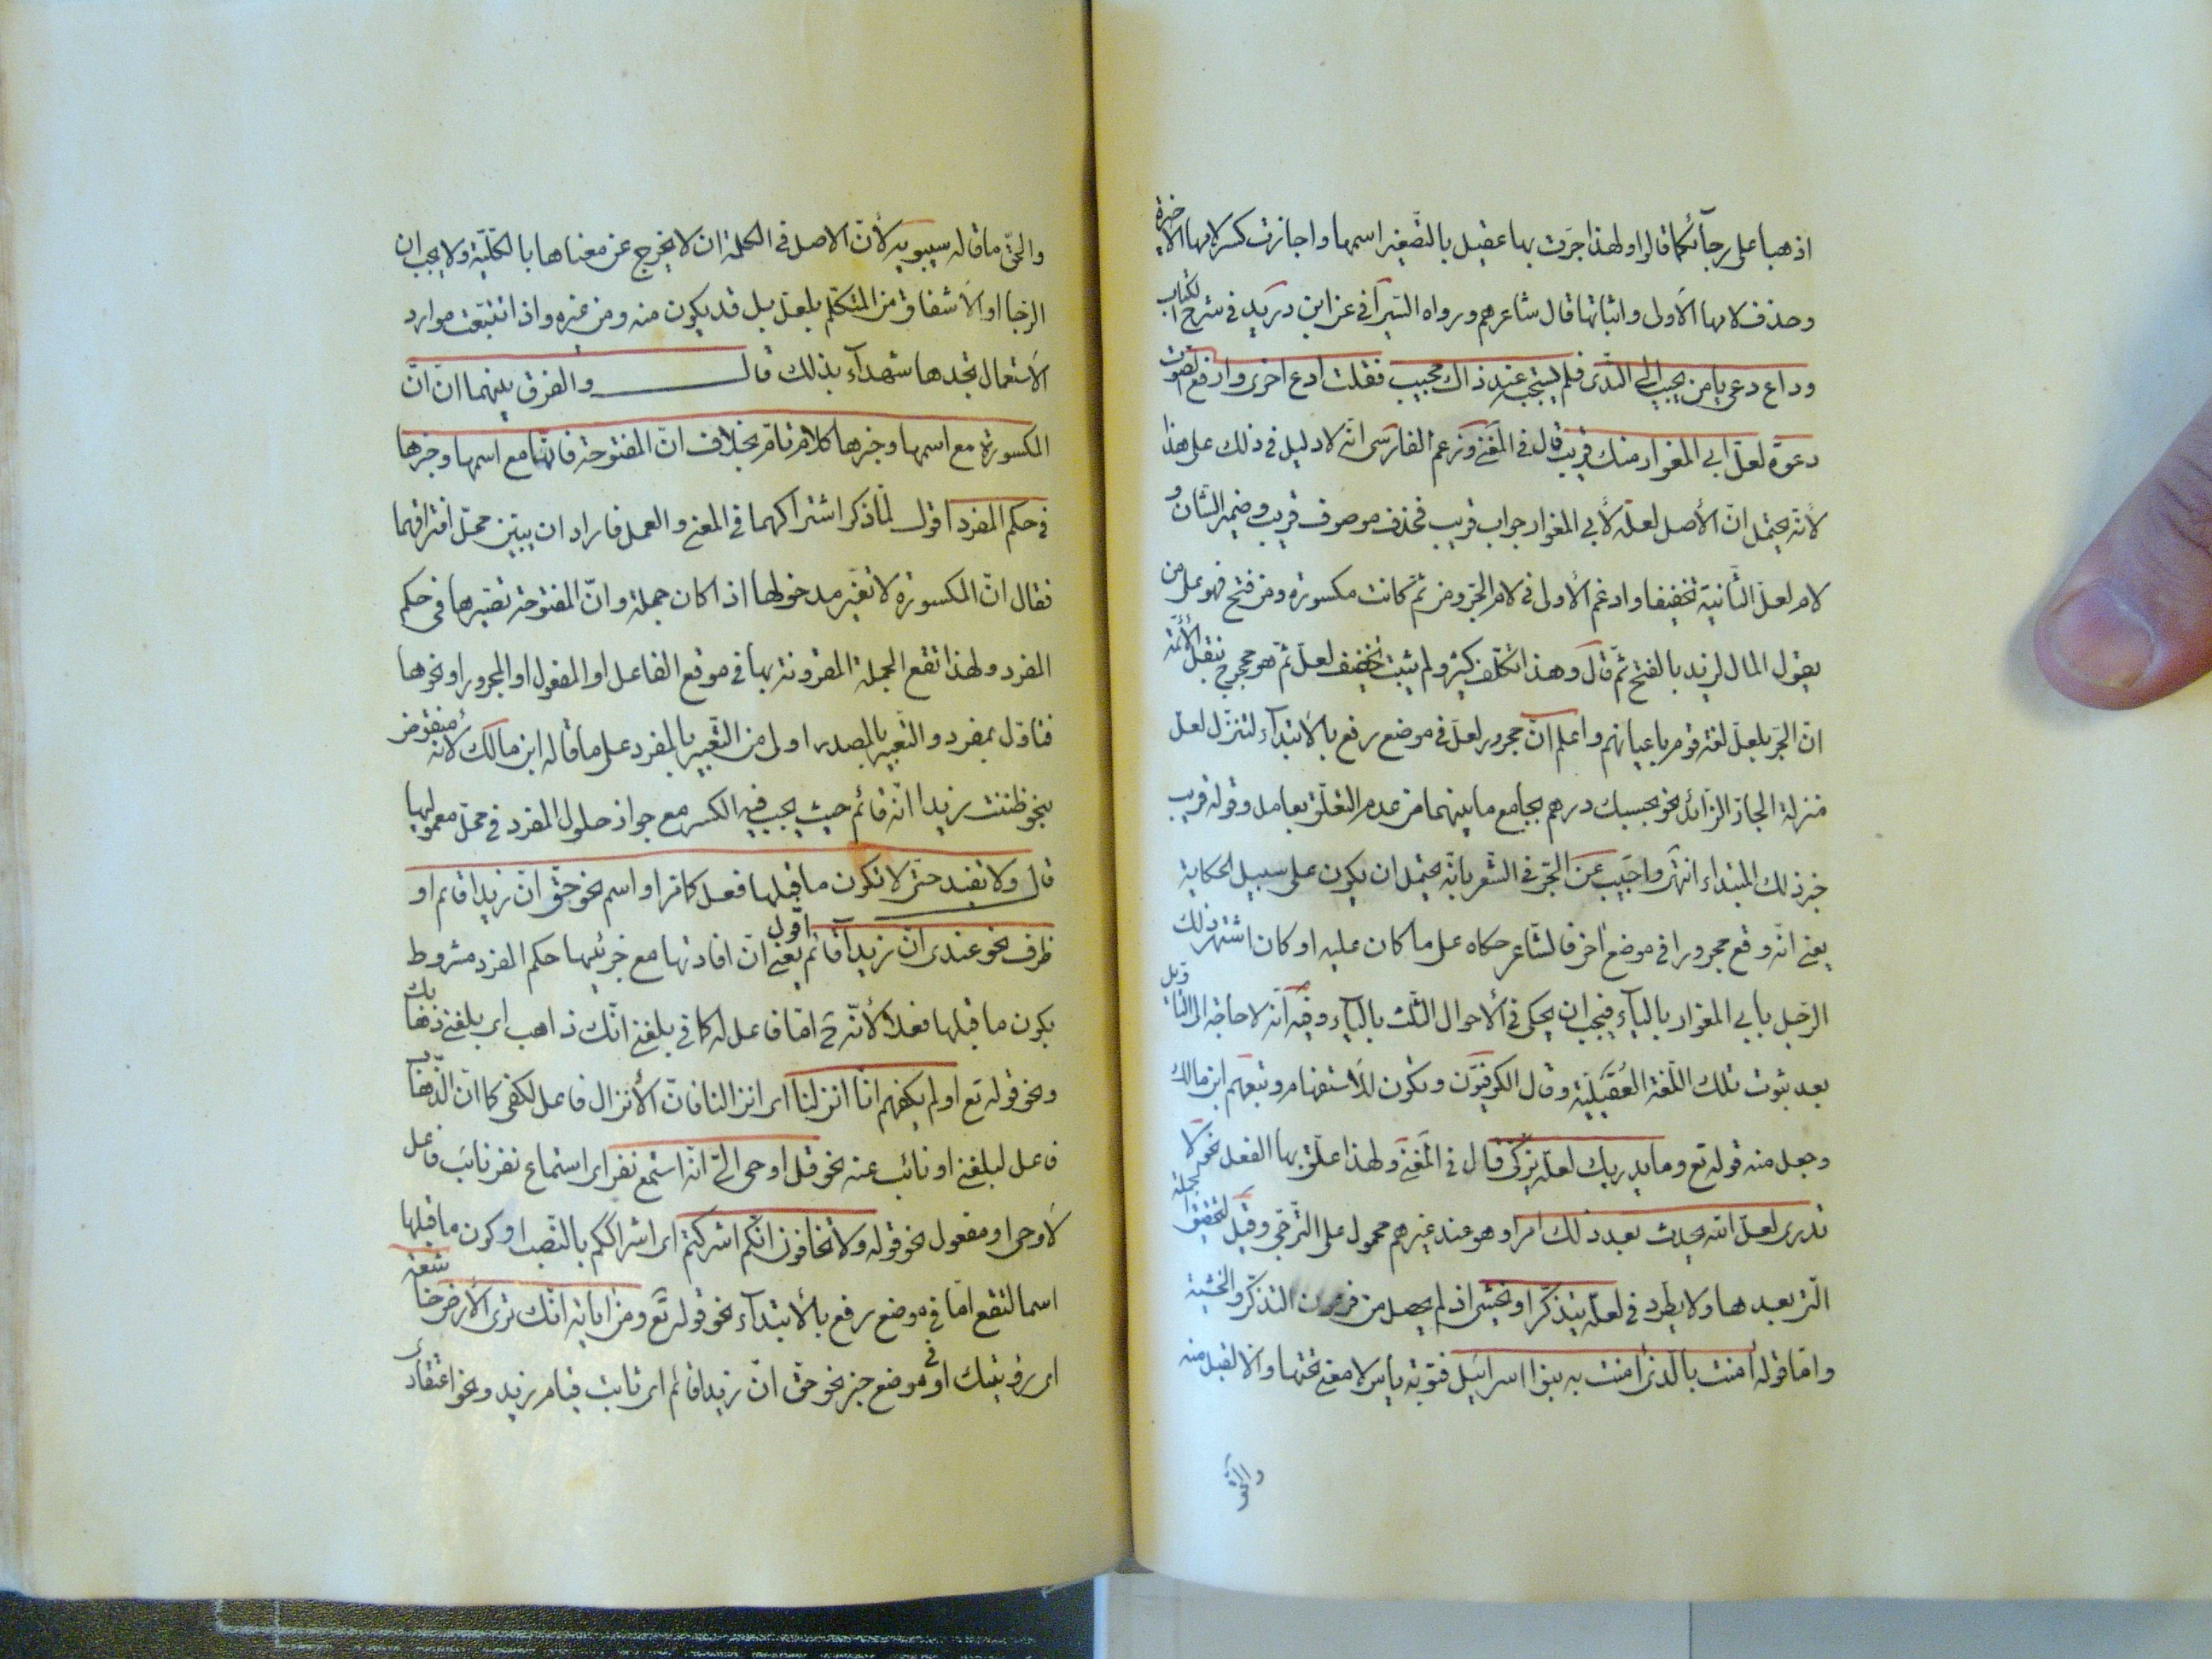 اذهبا على رجآئكما قالوا ولهذا جرّت بها عقيل بالتّصغير اسمها واجازت كسر لامها الاخيرة
وحذف لامها الأولى واثباتها قال شاعرهم ورواه السّيرآفى عن ابن دريد فى شرح الكتاب
وداع دعى يا من يجيب الى النّدى فلم يستجبه عند ذاك مجيب فقلت ادع اخرى وارفع الصّوت
دعوة لعلّ ابى المغوار منك قريب قال فى المغنى وزعم الفارسى انّه لا دليل فى ذلك على هذا
لأنّه يحتمل انّ الأصل لعلّه لأبى المغوار جواب قريب فحذف موصوف قريب وضمير الشّان و
لام لعلّ الثّانية تخفيفا وادغم الأولى فى لام الجرّ ومن ثمّ كانت مكسورة ومن فتح فهو على من
يقول المال لزيد بالفتح ثمّ قال وهذا تكلّف كثير ولم يثبت تخفيف لعلّ ثمّ هو محجوج بنقل الأئمّة
انّ الجرّ بلعلّ لغة قوم باعيانهم واعلم انّ مجرور لعلّ فى موضع رفع بالأبتدآء لتنزّل لعلّ
منزلة الجارّ الزّائد نحو بحسبك درهم بجامع ما بينهما من عدم التعلّق بعامل وقوله قريب
خبر ذلك المبتداء انتهى واجيب عن الجرّ فى الشّعر بانّه يحتمل ان يكون على سبيل الحكاية
يعنى انّه وقع مجرورا فى موضع اخر فالشّاعر حكاه على ما كان عليه او كان اشتهر ذلك
الرّجل بابى المغوار بالياء فيجب ان يحكى فى الأحوال الثّلث بالياء وفيه انّه لا حاجة الى التأويل
بعد ثبوت تلك اللّغة العُقَيليّة وقال الكوفيّون وتكون للأستفهام وتبعهم ابن مالك
وجعل منه قوله تع وما يدريك لعلّه يزّكّى قال فى المغنى ولهذا علّق بها الفعل نحو لا
تدرى لعلّ الله يحدث بعد ذلك امرا وهو عند غيرهم محمول على التّرجّى وقيل لتحقيق الجملة
الّتى بعدها ولا يطّرد فى لعلّه يتذكّر او يخشى اذ لم يحصل من فرعون التذكّر والخشية
وامّا قوله امنت بالّذى امنت به بنوا اسرائيل فتوبة يأس لا معنى تحتها والّا لقبل منه
والحقّ
والحقّ ما قاله سيبويه لأنّ الاصل فى الكلمة ان لا يخرج عن معناها بالكلّيّة ولا يجب ان
الرّجا او الأشفاق من المتكلّم بلعلّ بل قد يكون منه ومن غيره واذا تتبّعت موارد
الأستعمال تجدها شهدآء بذلك قال والفرق بينهما انّ انّ
المكسورة مع اسمها وخبرها كلام تامّ بخلاف انّ المفتوحة فانّها مع اسمها وخبرها
فى حكم المفرد اقول لمّا ذكر اشتراكهما فى المعنى والعمل فاراد ان يبيّن محلّ افتراقهما
فقال انّ المكسورة لا تغيّر مدخولها اذا كان جملة وانّ المفتوحة تصيّرها فى حكم
المفرد ولهذا تقع الجملة المقرونة بها فى موقع الفاعل او المفعول او المجرور او نحوها
فتاوّل بمفرد والتّعبير بالمصدر اولى من التّعبير بالمفرد على ما قاله ابن مالك لأنّه منقوض
بنحو ظننت زيدا انّه قائم حيث يجب فيه الكسر مع جواز حلول المفرد فى محلّ معموليها
قال ولا تفيد حتّى لا تكون ما قبلها فعل كما مر او اسم نحو حقّ انّ زيدا قائم او
ظرف نحو عندى انّ زيدا قائم اقول يعنى انّ افادتها مع جزئيها حكم المفرد مشروط
بكون ما قبلها فعلا لأنّه ح امّا فاعل له كما فى بلغنى انّك ذاهب اى بلغنى ذهابك
ونحو قوله تع او لم يكفهم انّا انزلنا اى انزالنا فانّ الأنزال فاعل لكفى كما انّ الذّهاب
فاعل لبلغنى او نائب عنه نحو قل اوحى الىّ انّه استمع نفر اى استماع نفر نائب فاعل
لأوحى او مفعول نحو قوله ولا تخافون انّكم اشركتم اى اشراككم بالنّصب او كون ما قبلها
اسما لتقع امّا فى موضع رفع بالأبتدآء نحو قوله تع ومن اياته انّك ترى الأرض خاشعة
اى رؤيتك او فى موضع خبر نحو حقّ انّ زيدا قائم اى ثابت قيام زيد ونحو اعتقادى